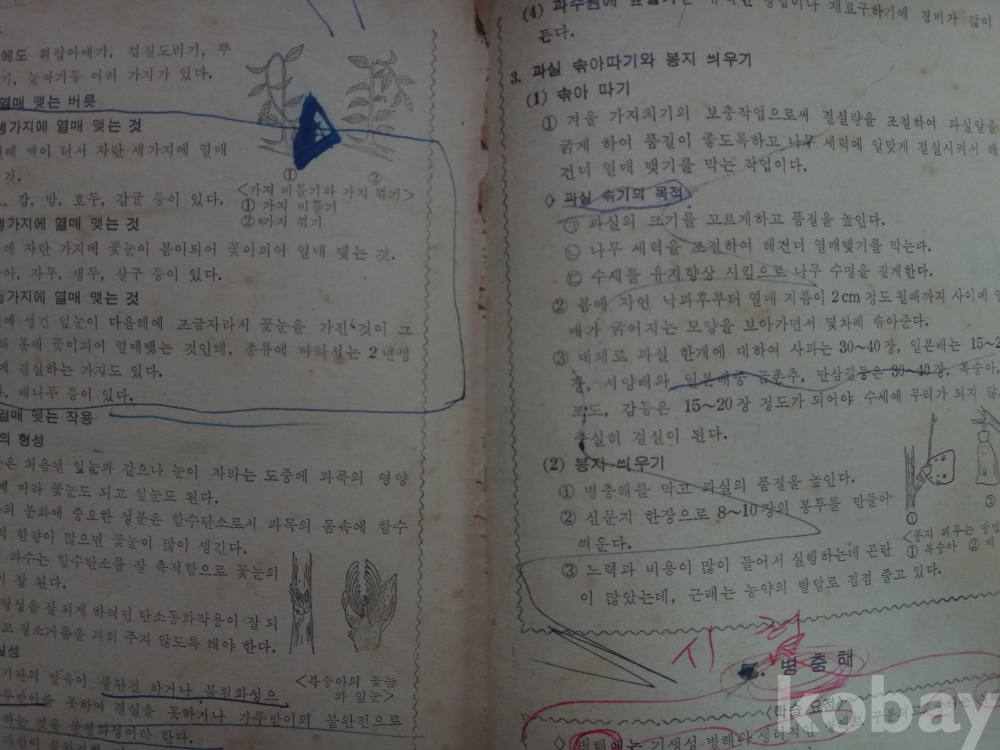 에도 휘잡아매기, 껍질도리기, 뿌
기, 눈따기등 여러 가지가 있다.
열매 맺는 버릇
생가지에 열매 맺는 것
싹이 터서 자란 새가지에 열매
것.
감, 밤, 호두, 감귤 등이 있다.
가지에 열매 맺는 것
에 자란 가지에 꽃눈이 봄이되어 꽃이피어 열매 맺는 것.
자두, 앵두, 살구 등이 있다.
생가지에 열매 맺는 것
에 생긴 잎눈이 다음해에 조금자라서 꽃눈을 가진 것이 그
봄에 꽃이피어 열매맺는 것인데, 종류에 따라서는 2년생
에 결실하는 가지도 있다.
배나무 등이 있다.
열매 맺는 작용
의 형성
은 처음엔 잎눈과 같으나 눈이 자라는 도중에 과목의 영양
에 따라 꽃눈도 되고 잎눈도 된다.
의 분화에 중요한 성분은 함수탄소로서 과목의 몸속에 함수
의 함량이 많으면 꽃눈이 많이 생긴다.
화수는 함수탄소를 잘 축적함으로 꽃눈의
이 잘 된다.
형성을 잘 되게 하려면 탄소동화작용이 잘 되
고 질소거름을 과히 주지 않도록 해야 한다.
기관의 발육이 불완전 하거나 불친화성으
루받이를 못하여 결실을 못하거나 가루받이의 불완전으로
하는 것을 불친화성이라 한다.
① ②
<가지 비틀기와 가지 꺾기>
① 가지 비틀기
② 가지 꺾기
<복숭아의 꽃눈
과 잎눈>
(4) 과수원에
재료구하기에 경비가 많이
든다.
3. 과실 솎아따기와 봉지 씌우기
(1) 솎아 따기
① 겨울 가지치기의 보충작업으로써 결실량을 조절하여 과실알을
굵게 하여 품질이 좋도록하고 나무 세력에 알맞게 결실시켜서 해
건너 열매 맺기를 막는 작업이다.
◇ 과실 솎기의 목적
㉠ 과실의 크기를 고르게하고 품질을 높인다.
㉡ 나무 세력을 조절하여 해건너 열매맺기를 막는다.
㉢ 수세를 유지향상 시킴으로 나무 수명을 길게한다.
② 봄에 자연 낙과후부터 열매 지름이 2cm 정도 될때까지 사이에
매가 굵어지는 모양을 보아가면서 몇차례 솎아준다.
③ 대체로 과실 한개에 대하여 사과는 30~40장, 일본배는 15~2
장, 서양배와 일본배중 금촌추, 만삼길등은 30~40장, 복숭아,
포도, 감등은 15~20장 정도가 되어야 수세에 무리가 되지 않
충실히 결실이 된다.
(2) 봉지 씌우기
① 병충해를 막고 과실의 품질을 높인다.
② 신문지 한장으로 8~10장의 봉투를 만들어
씌운다.
③ 노력과 비용이 많이 들어서 실행하는데 곤란
이 많았는데, 근래는 농약의 발달로 점점 줄고 있다.
① ③
<봉지 씌우는 방법
① 복숭아 ②
시험
병충해
<학습 요점>
◇ 병해에는 기생성 병해와 생리적인
kobay